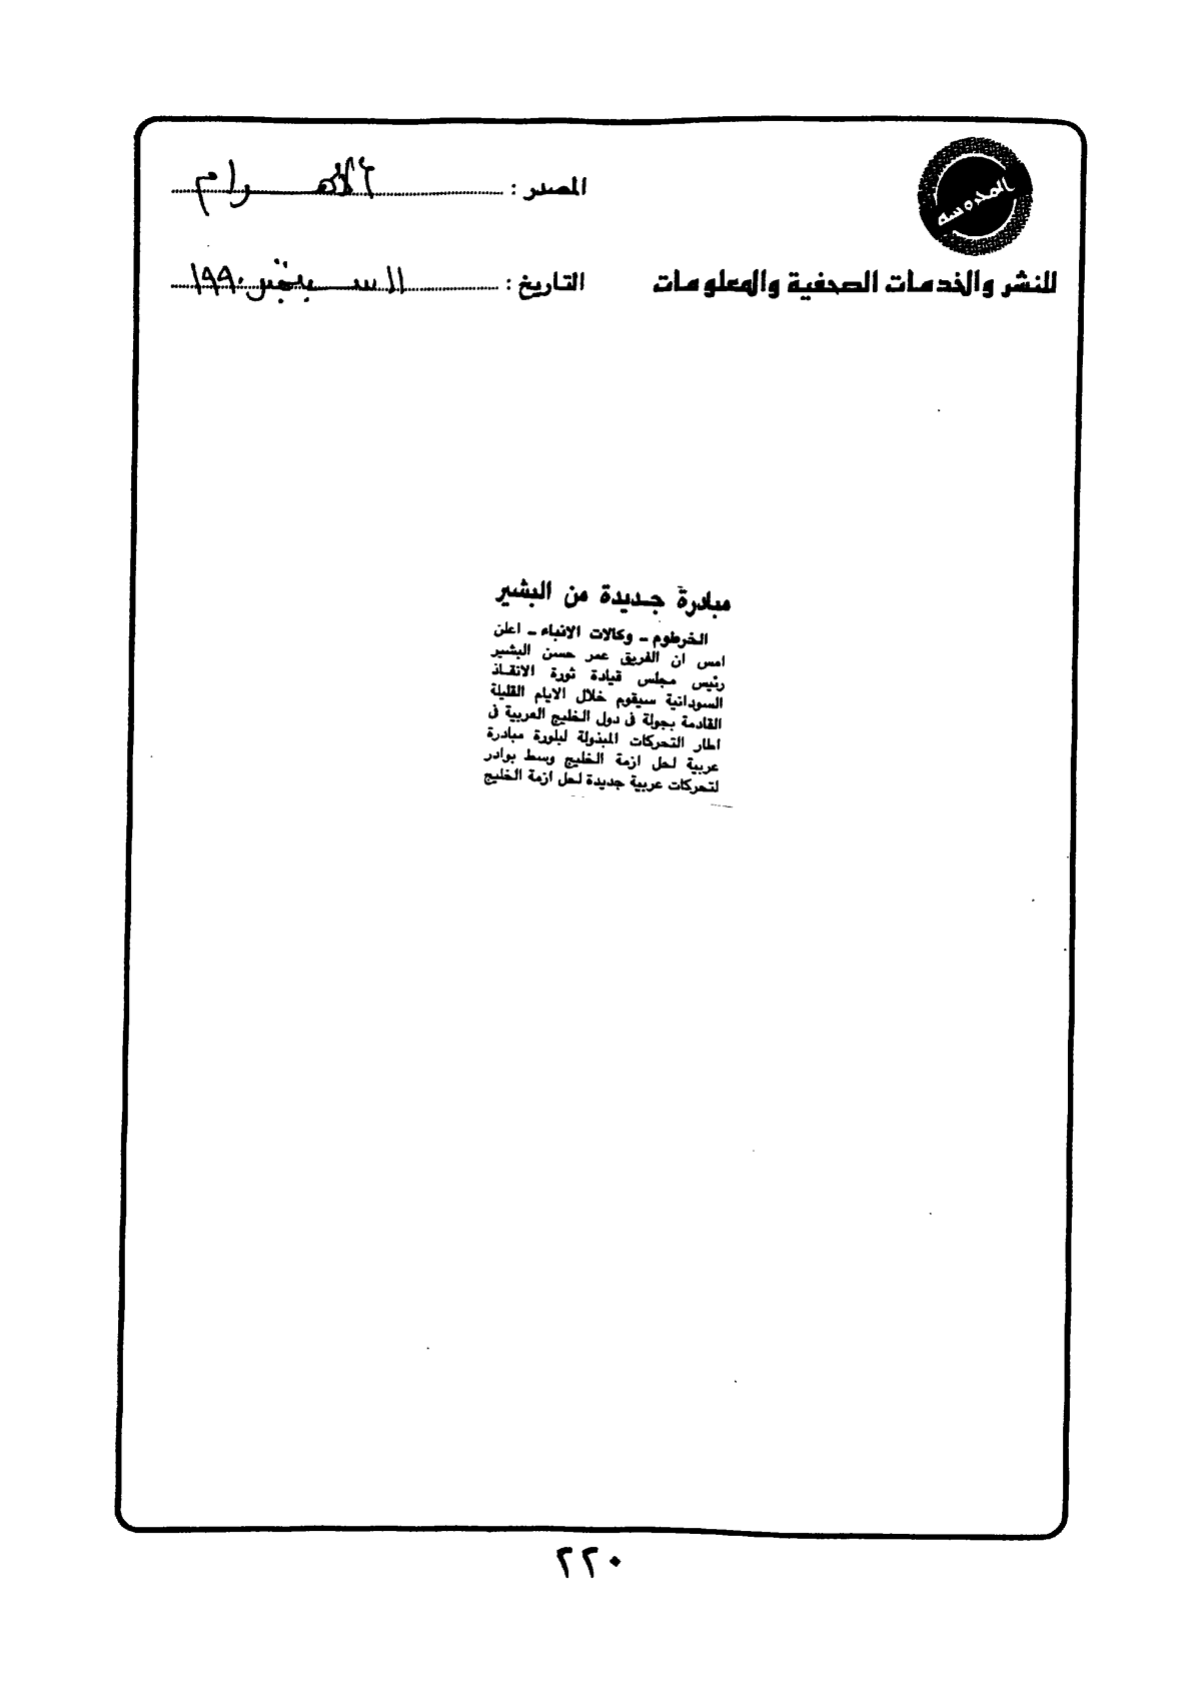 المحروسة
المصدر : الأهرام
للنشر والخدمات الصحفية والمعلومات
التاريخ : ١١ سبتمبر ١٩٩٠
مبادرة جديدة من البشير
الخرطوم - وكالات الانباء - اعلن
امس ان الفريق عمر حسن البشير
رئيس مجلس قيادة ثورة الانقاذ
السودانية سيقوم خلال الايام القليلة
القادمة بجولة فى دول الخليج العربية فى
اطار التحركات المبذولة لبلورة مبادرة
عربية لحل ازمة الخليج وسط بوادر
لتحركات عربية جديدة لحل ازمة الخليج
٢٢٠